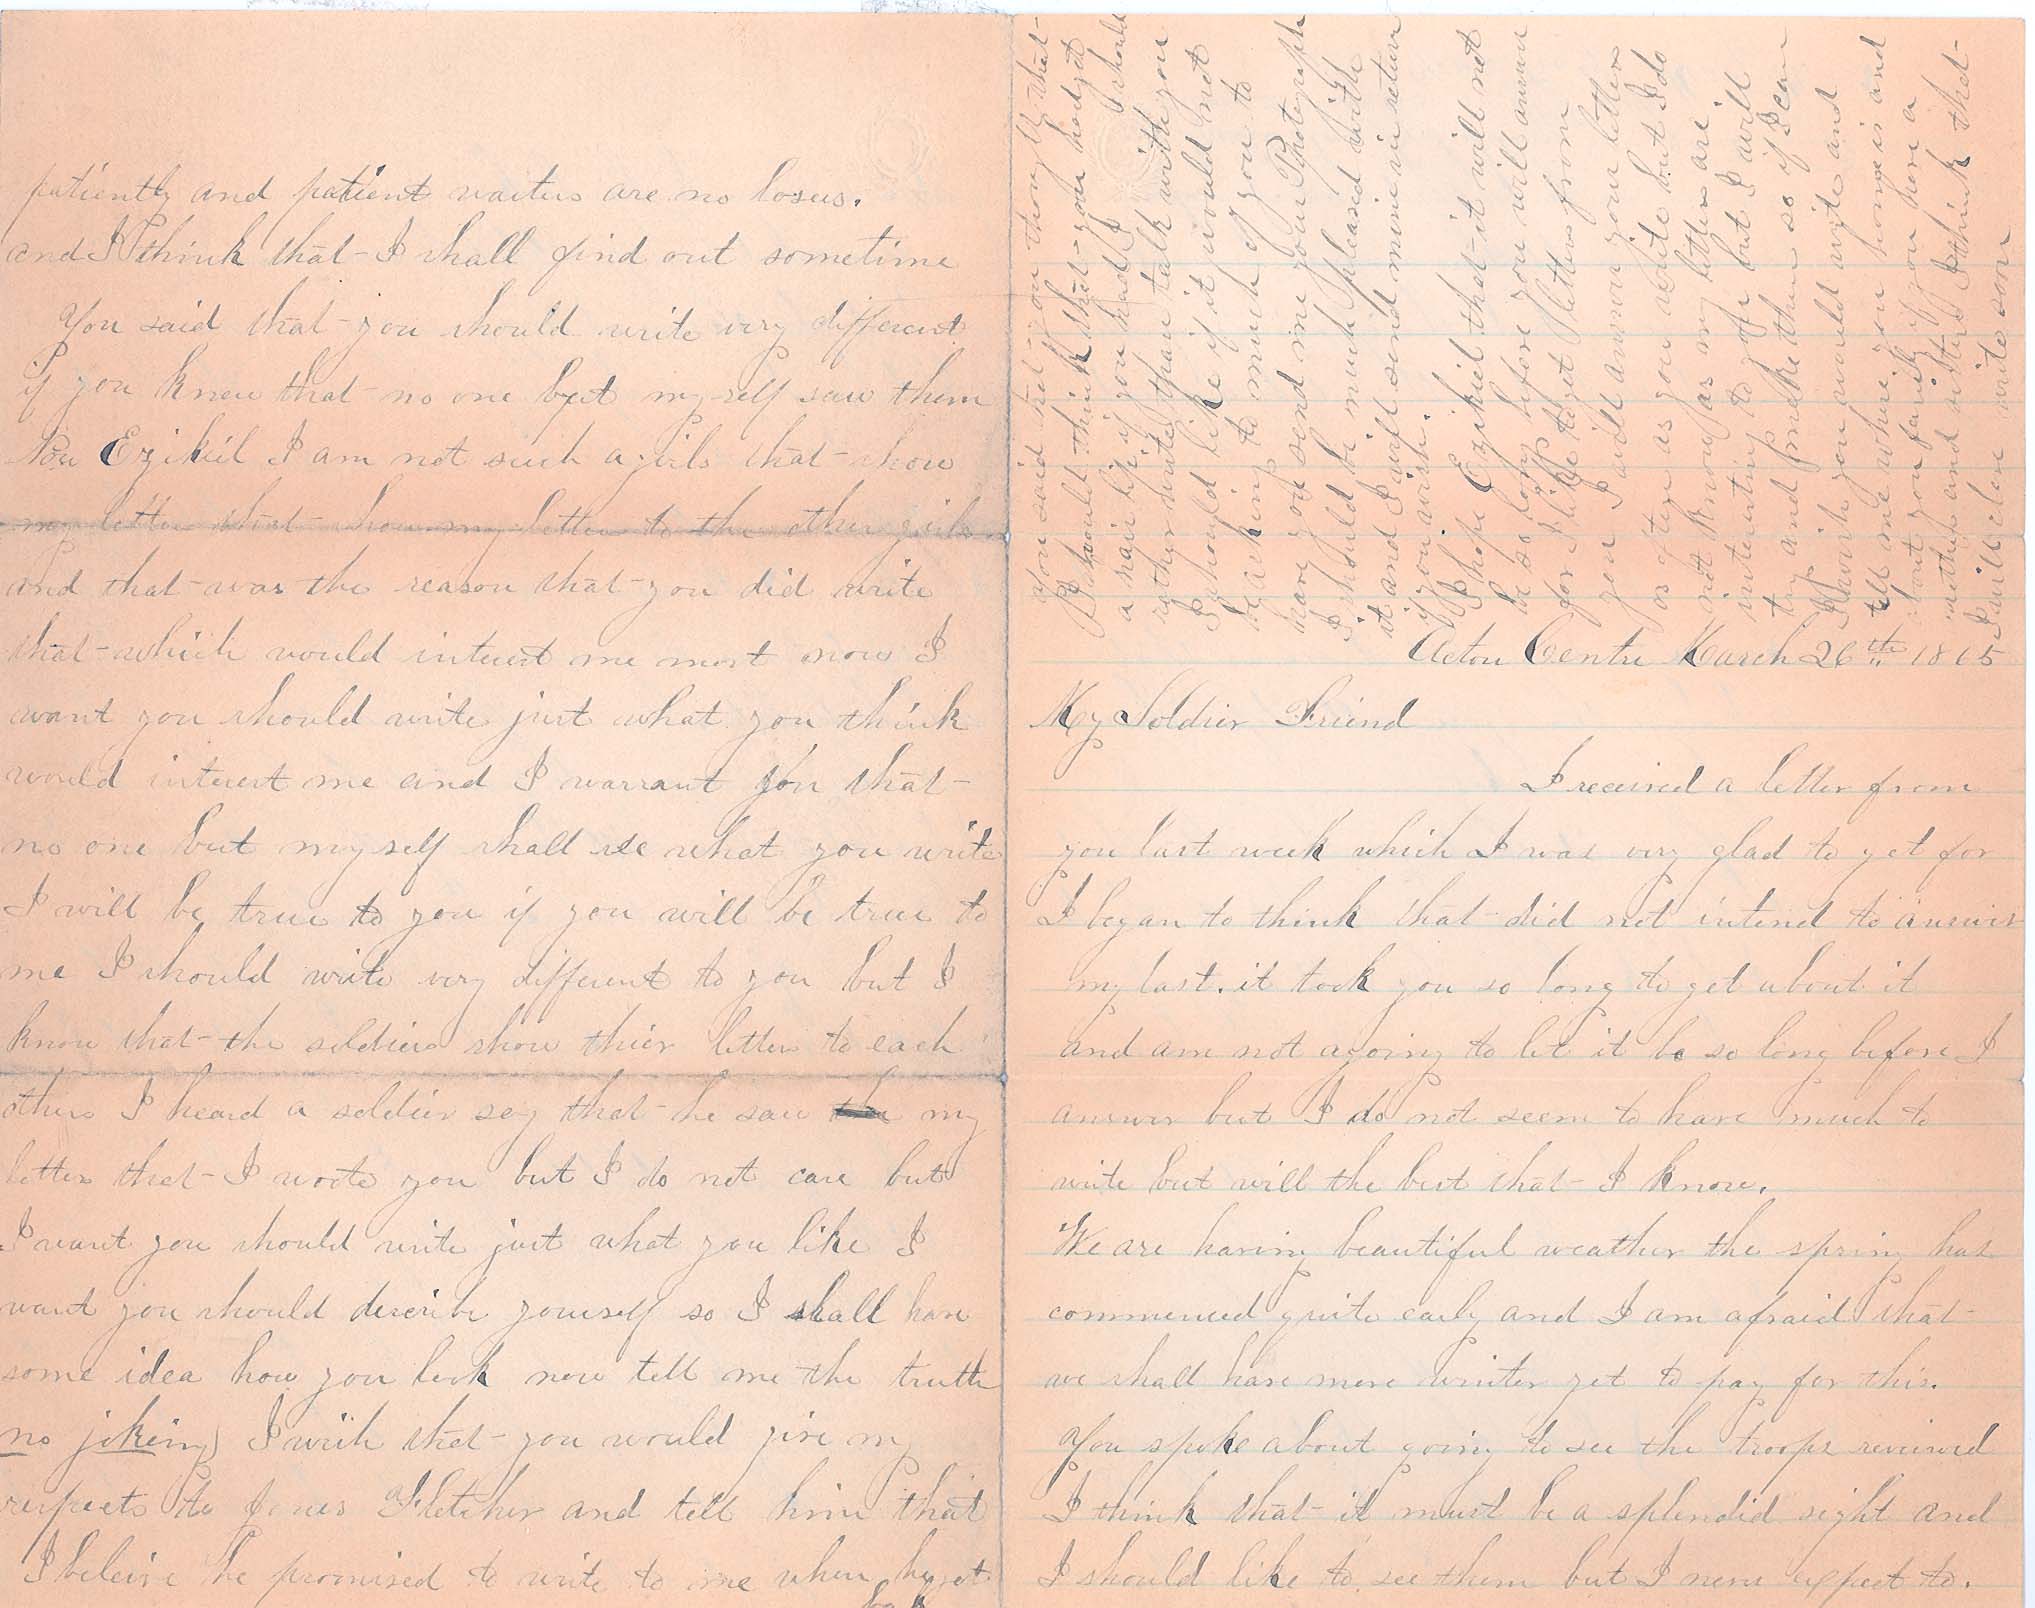 Acton Centre March 26th 1865
My Soldier Friend
I received a letter from
you last week which I was very glad to get for
I began to think that did not intend to answer
my last. it took you so long to get about it
and am not agoing to let it be so long before I
answer but I do not seem to have much to
write but will the best that I know.
We are having beautiful weather the spring has
commenced quite early and I am afraid that
we shall have more winter yet to pay for this.
You spoke about going to see the troops reviewed
I think that it must be a splendid sight and
I should like to see them but I never expect to.
patiently and patient waiters are no losers.
and I think that I shall find out sometime
You said that you should write very different
if you knew that no one but my self saw them
Now Ezikiel I am not such a girls that show
my letter that show my letter to the other girls
and that was the reason that you did write
that which would interest me most now I
want you should write just what you think
would interest me and I warrant you that
no one but my self shall see what you write
I will be true to you if you will be true to
me I should write very different to you but I
know that the soldiers show thier letters to each
others I heard a soldier say that he saw the my
letter that I wrote you but I do not care but
I want you should write just what you like I
want you should describe yourself so I shall have
some idea how you look now tell me the truth
no joking) I wish that you would give my
respects to Jones Fletcher and tell him that
I beleive he promised to write to me when he got
back
you said that you thought that
I should think that you had get
a hair if you had I should
rather write than talk with you
I should like if it would not
be asking to much of you to
have you send me your Photograph
I should be much pleased with
it and I will send mine in return
if you wish.
I hope Ezikiel that it will not
be so long before you will answer
for I like to get letters from
you I will answer your letters
as often as you write but I do
not know as my letters are
interesting to you but I will
try and make them so if I can
I wish you would write and
tell me where your home is and
about your family if you have a
mother and sisters I think that
I will close write soon